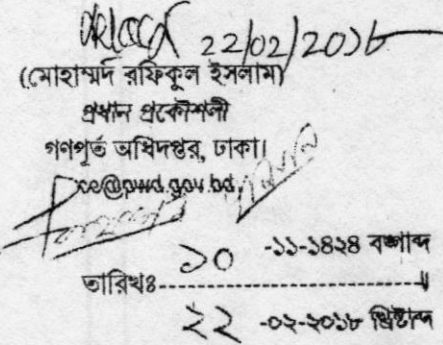 22/02/2018
(মোহাম্মদ রফিকুল ইসলাম)
প্রধান প্রকৌশলী
গণপূর্ত অধিদপ্তর, ঢাকা।
ce@pwd.gov.bd
১০ -১১-১৪২৪ বঙ্গাব্দ
তারিখঃ
২২ -০২-২০১৮ খ্রিষ্টাব্দ